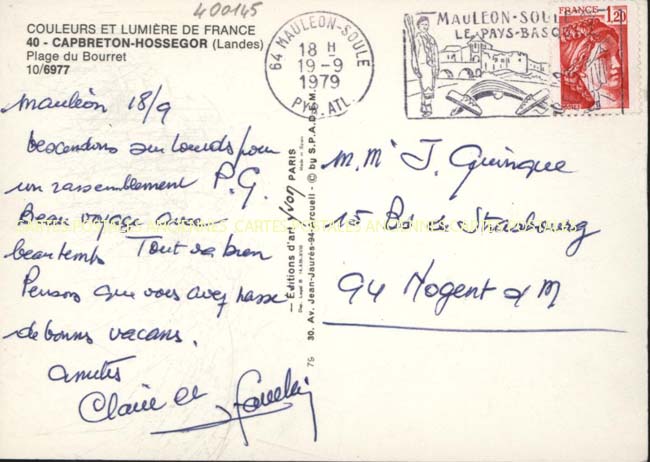 400145
COULEURS ET LUMIÈRE DE FRANCE
40 - CAPBRETON-HOSSEGOR (Landes)
Plage du Bourret
10/6977
64 MAULEON-SOULE
18 H
19-9
1979
PYR. ATL.
MAULEON-SOUL
LE PAYS-BASQUE
FRANCE 1,20
Mauléon 18/9
Descendons sur Lourdes pour
un rassemblement P.G.
Beau voyage avec
beau temps Tout va bien
Pensons que vous avez passé
de bonnes vacans.
amitiés
Claire et
M. Me J. Guinque
15 Bd de Strasbourg
94 Nogent s M
CARTES POSTALES ANCIENNES CARTES POSTALES ANCIENNES CARTES POSTALES
— Éditions d'art Yvon PARIS
30. Av. Jean-Jaurès-94-Arcueil - © by S.P.A.D.E.M.
79